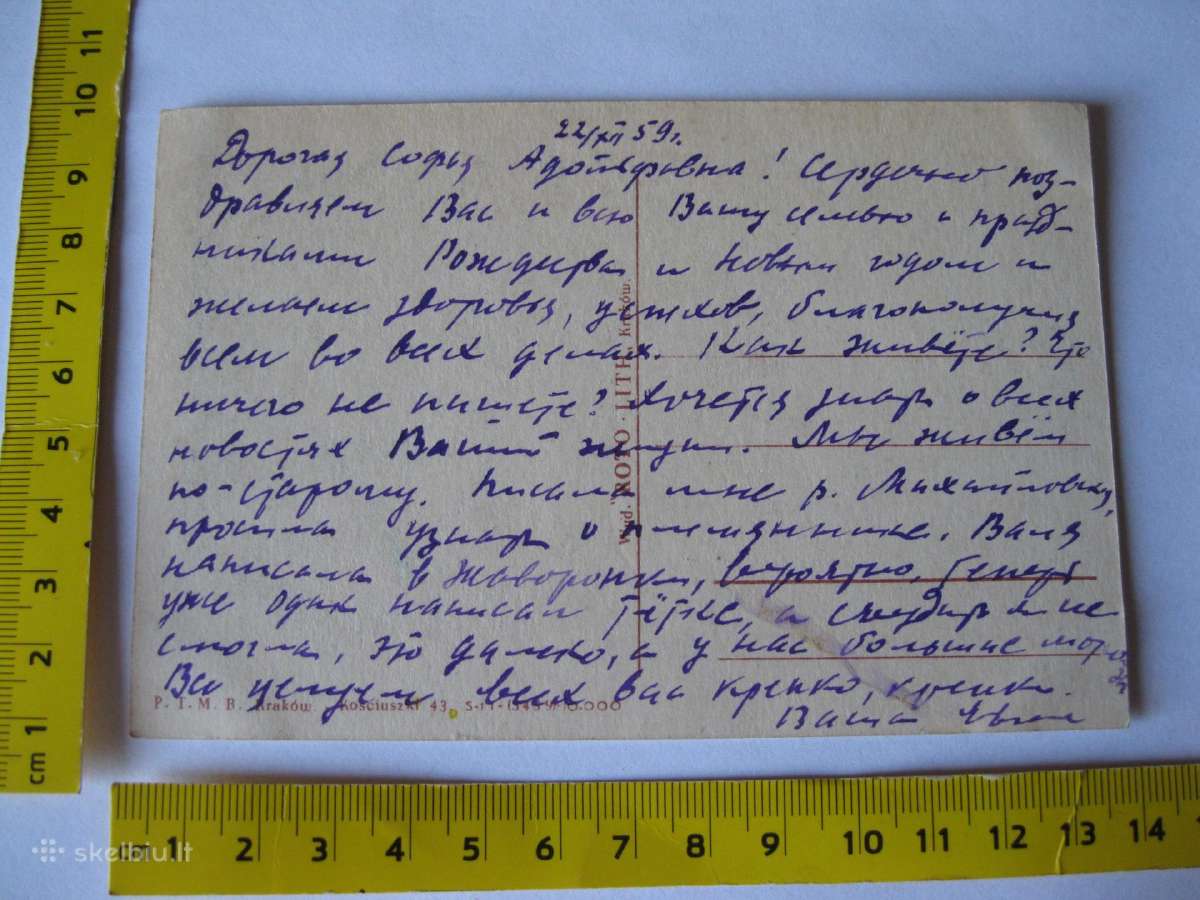 22/XII 59г.
Дорогая Софья Адольфовна! Сердечно поз-
дравляем Вас и всю Вашу семью с празд-
никами Рождества и Новым годом и
желаем здоровья, успехов, благополучия
всем во всех делах. Как живёте? Что
ничего не пишете? Хочется знать о всех
новостях Вашей жизни. Мы живём
по-старому. Писала мне р. Михайловна,
просила узнать о племяннике. Валя
написала в Жаворонки, вероятно, теперь
уже один написал тётке, а съездить я не
смогла, это далеко, а у нас большие морозы
Все целуем всех вас крепко, крепко.
Ваша
P. T. M. B. Kraków, Kościuszki 43.
Wyd. "ROTO - LITH" Kraków.
cm 1 2 3 4 5 6 7 8 9 10 11
1 2 3 4 5 6 7 8 9 10 11 12 13 14
skelbiu.lt